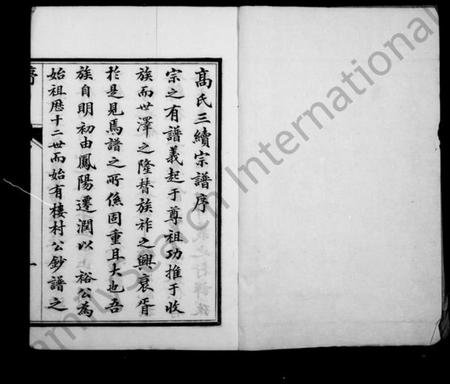 高氏三續宗譜序
宗之有譜義起于尊祖功推于收
族而世澤之隆替族祚之興衰胥
於是見焉譜之所係固重且大也吾
族自明初由鳳陽遷潤以 裕公為
始祖曆十二世而始有棲村公鈔譜之
FamilySearch International